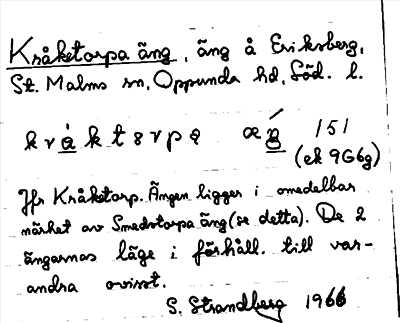 Kråketorpa äng, äng å Eriksberg,
St. Malms sn, Oppunda hd, Söd. l.
kråktorpa æŋ́ 151
(ek 9G6g)
Jfr Kråketorp. Ängen ligger i omedelbar
närhet av Smedstorpa äng (se detta). De 2
ängarnas läge i förhåll. till var-
andra ovisst.
S. Strandberg 1966